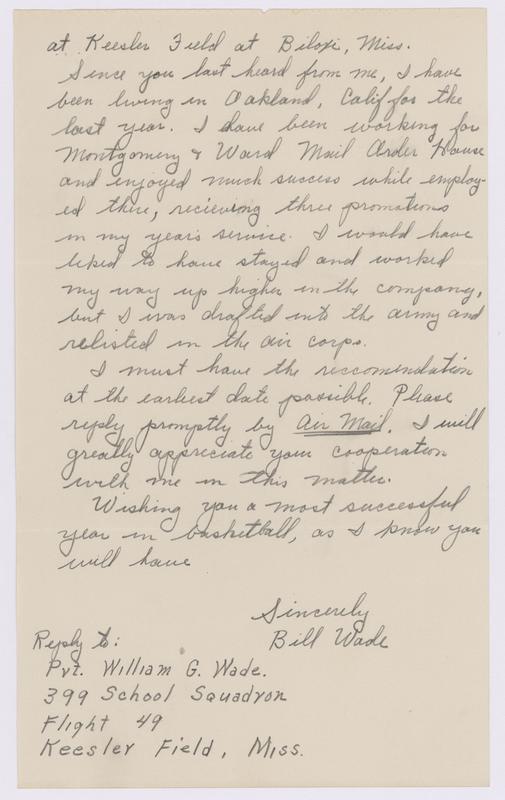 at Keesler Field at Biloxi, Miss.
Since you last heard from me, I have
been living in Oakland, Calif for the
last year. I have been working for
Montgomery & Ward Mail Order House
and enjoyed much success while employ-
ed there, recieving three promotions
in my year's service. I would have
liked to have stayed and worked
my way up higher in the company,
but I was drafted into the army and
relisted in the air corps.
I must have the reccomendation
at the earliest date possible. Please
reply promptly by Air Mail. I will
greatly appreciate your cooperation
with me in this matter.
Wishing you a most successful
year in basketball, as I know you
will have
Sincerely
Bill Wade
Reply to:
Pvt. William G. Wade.
399 School Squadron
Flight 49
Keesler Field, Miss.